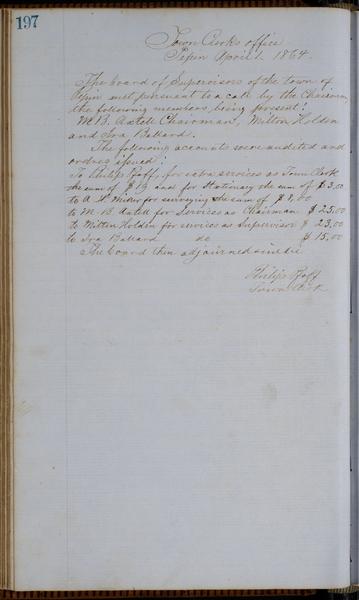 197
Town Clerks office
Pepin April 1. 1864.
The board of Supervisors of the town of
Pepin met pursuant to a call by the Chairman,
the following members being present:
M. B. Axtell Chairman, Milton Holden
and Ira Ballard.
The following accounts were audited and
orders issued:
To Philip Pfaff, for extra services as Town Clerk
the sum of $ and for Stationary the sum of $3,00
to A. Miller for surveying the sum of $ 8,00
to M. B. Axtell for Services as Chairman $ 25,00
to Milton Holden for services as Supervisor $ 23,00
to Ira Ballard do $ 15,00
The board then adjourned sine die
Philip Pfaff
Town Clerk